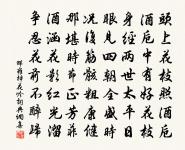 頭上花枝照酒卮
酒卮中有好花枝
身經兩世太平日
眼見四朝全盛時
況復筋骸粗康健
那堪時節正芳菲
酒涵花影紅光溜
爭忍花前不醉歸
邵雍插花吟